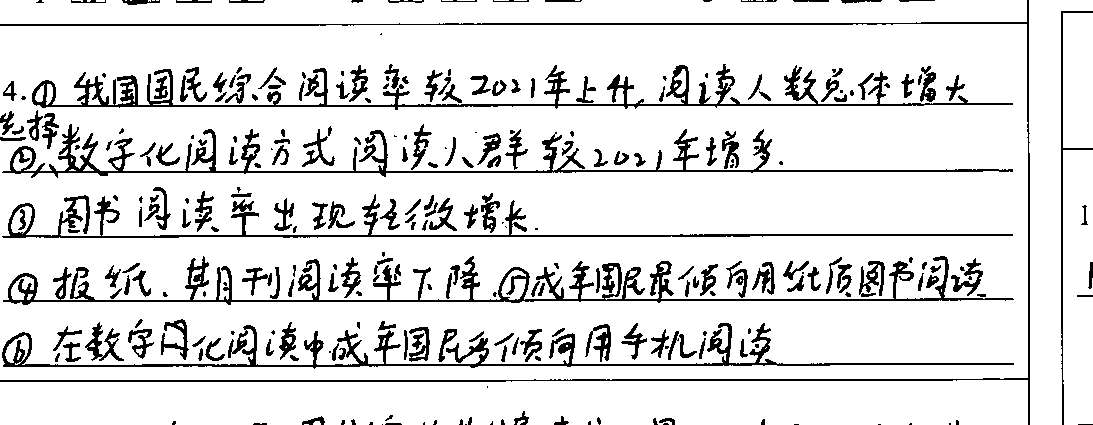 4.① 我国国民综合阅读率较2021年上升,阅读人数总体增大
②选择数字化阅读方式阅读人群较2021年增多.
③ 图书阅读率出现轻微增长.
④ 报纸、期刊阅读率下降.⑤成年国民最倾向用纸质图书阅读
⑥ 在数字化阅读中成年国民多倾向用手机阅读